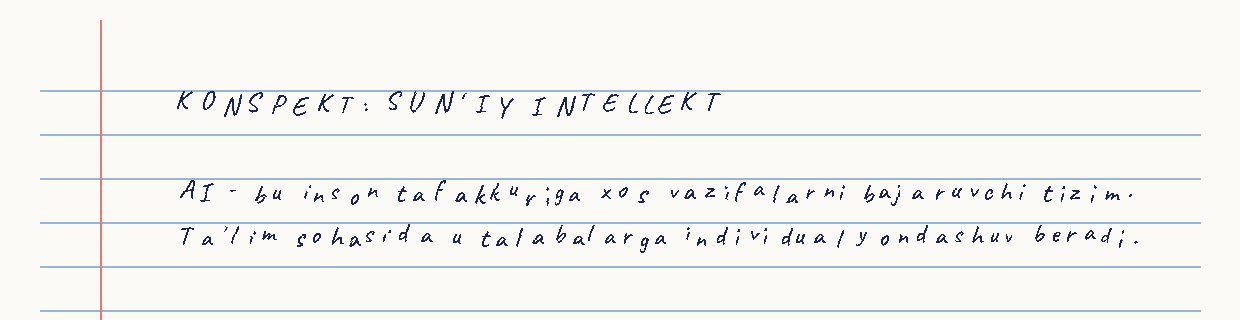 KONSPEKT: SUN'IY INTELLEKT
AI - bu inson tafakkuriga xos vazifalarni bajaruvchi tizim.
Ta'lim sohasida u talabalarga individual yondashuv beradi.